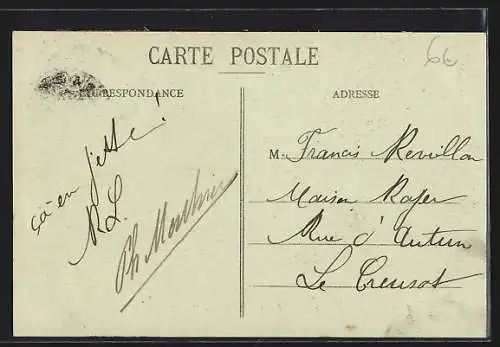 CARTE POSTALE
66
CORRESPONDANCE
ADRESSE
ça en jette !
R L.
Ph Mathis
M. Francis Revillon
Maison Roger
Rue d'Autun
Le Creusot